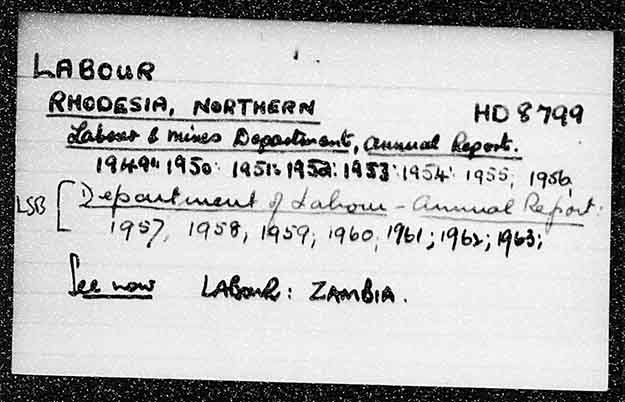 LABOUR
RHODESIA, NORTHERN HD 8799
Labour & Mines Department, Annual Report.
1949; 1950; 1951; 1952; 1953; 1954; 1955; 1956,
LSB [Department of Labour - Annual Report.
1957, 1958, 1959, 1960, 1961; 1962; 1963;
See now LABOUR: ZAMBIA.